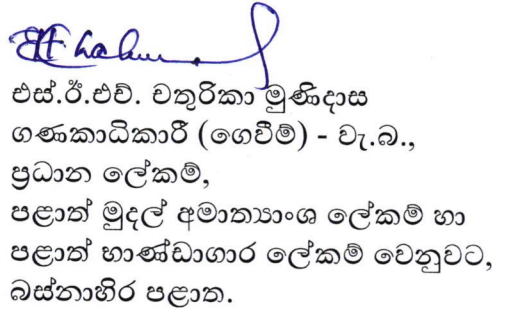 එස්.ඊ.එච්. චතුරිකා මුණිදාස
ගණකාධිකාරී (ගෙවීම්) - වැ.බ.,
ප්‍රධාන ලේකම්,
පළාත් මුදල් අමාත්‍යාංශ ලේකම් හා
පළාත් භාණ්ඩාගාර ලේකම් වෙනුවට,
බස්නාහිර පළාත.